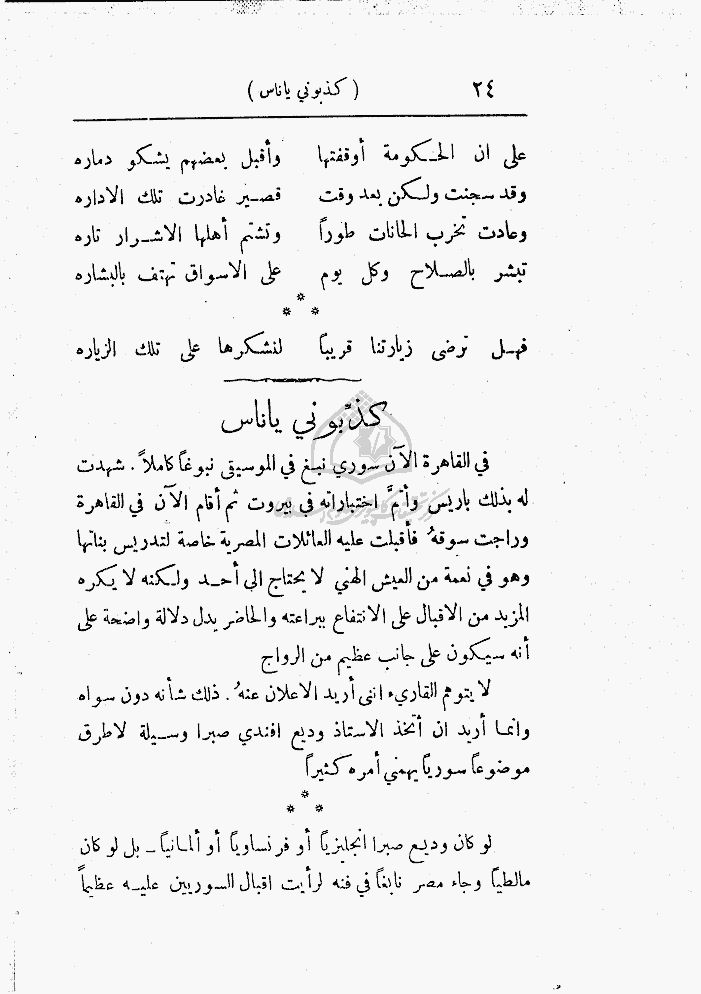 ٢٤ ( كذبوني ياناس )
على ان الحكومة أوقفتها وأقبل بعضهم يشكو دماره
وقد سجنت ولكن بعد وقت قصير غادرت تلك الاداره
وعادت تخرب الحانات طوراً وتشتم أهلها الاشرار تاره
تبشر بالصلاح وكل يوم على الاسواق تهتف بالبشاره
* * *
فهل ترضى زيارتنا قريباً لنشكرها على تلك الزياره
كذّبوني ياناس
في القاهرة الآن سوري نبغ في الموسيقى نبوغاً كاملاً. شهدت
له بذلك باريس وأتمَّ اختباراته في بيروت ثم أقام الآن في القاهرة
وراجت سوقهُ فأقبلت عليه العائلات المصرية خاصة لتدريس بناتها
وهو في نعمة من العيش الهني لا يحتاج الى أحد ولكنه لا يكره
المزيد من الاقبال على الانتفاع ببراعته والحاضر يدل دلالة واضحة على
أنه سيكون على جانب عظيم من الرواج
لا يتوهم القاريء انني أريد الاعلان عنهُ. ذلك شأنه دون سواه
وانما أريد ان أتخذ الاستاذ وديع افندي صبرا وسيلة لاطرق
موضوعاً سورياً يهمني أمره كثيراً
* * *
لو كان وديع صبرا انجليزياً أو فرنساوياً أو ألمانياً ـ بل لو كان
مالطياً وجاء مصر نابغاً في فنه لرأيت اقبال السوريين عليه عظيماً